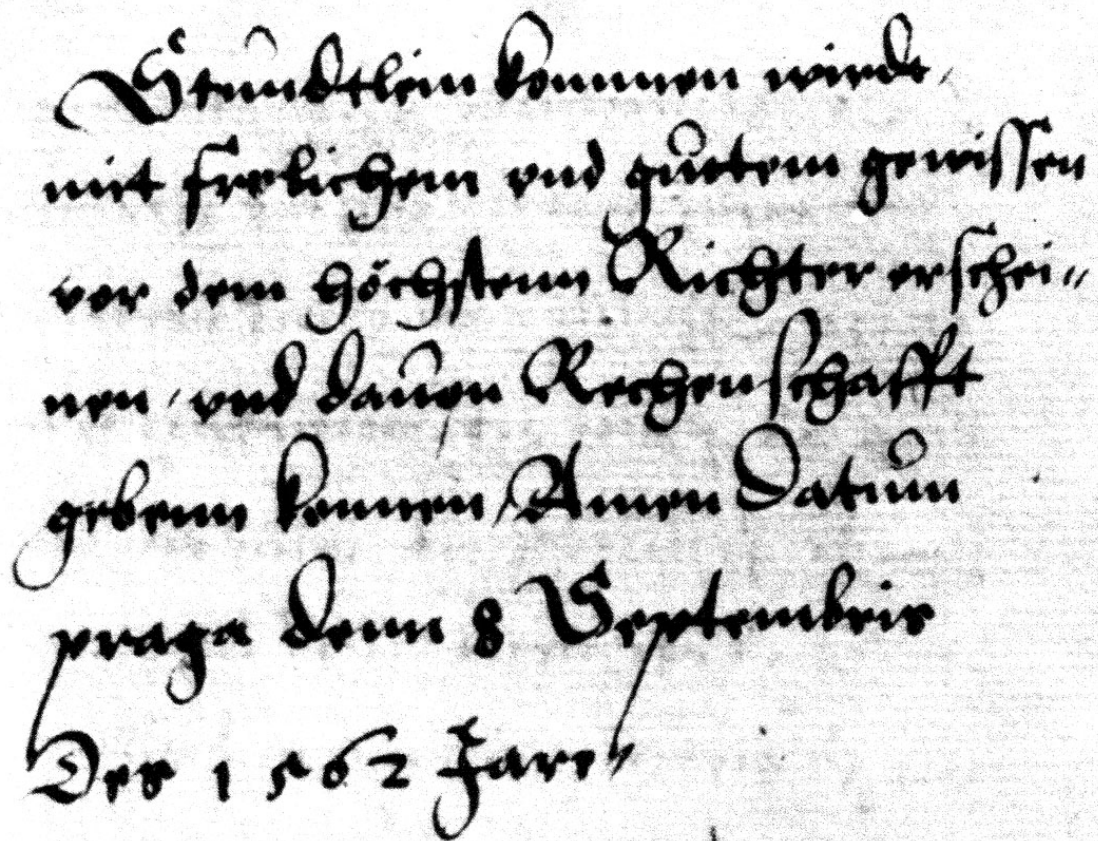 Stundtlein kommen wirdt,
mit frolichem vnd guetem gewissen
vor dem höchstenn Richter erschei„
nen, vnd dauon Rechenschafft
gebenn konnen, Amen Datum
praga denn 8 Septembris
Des 1562 Jars